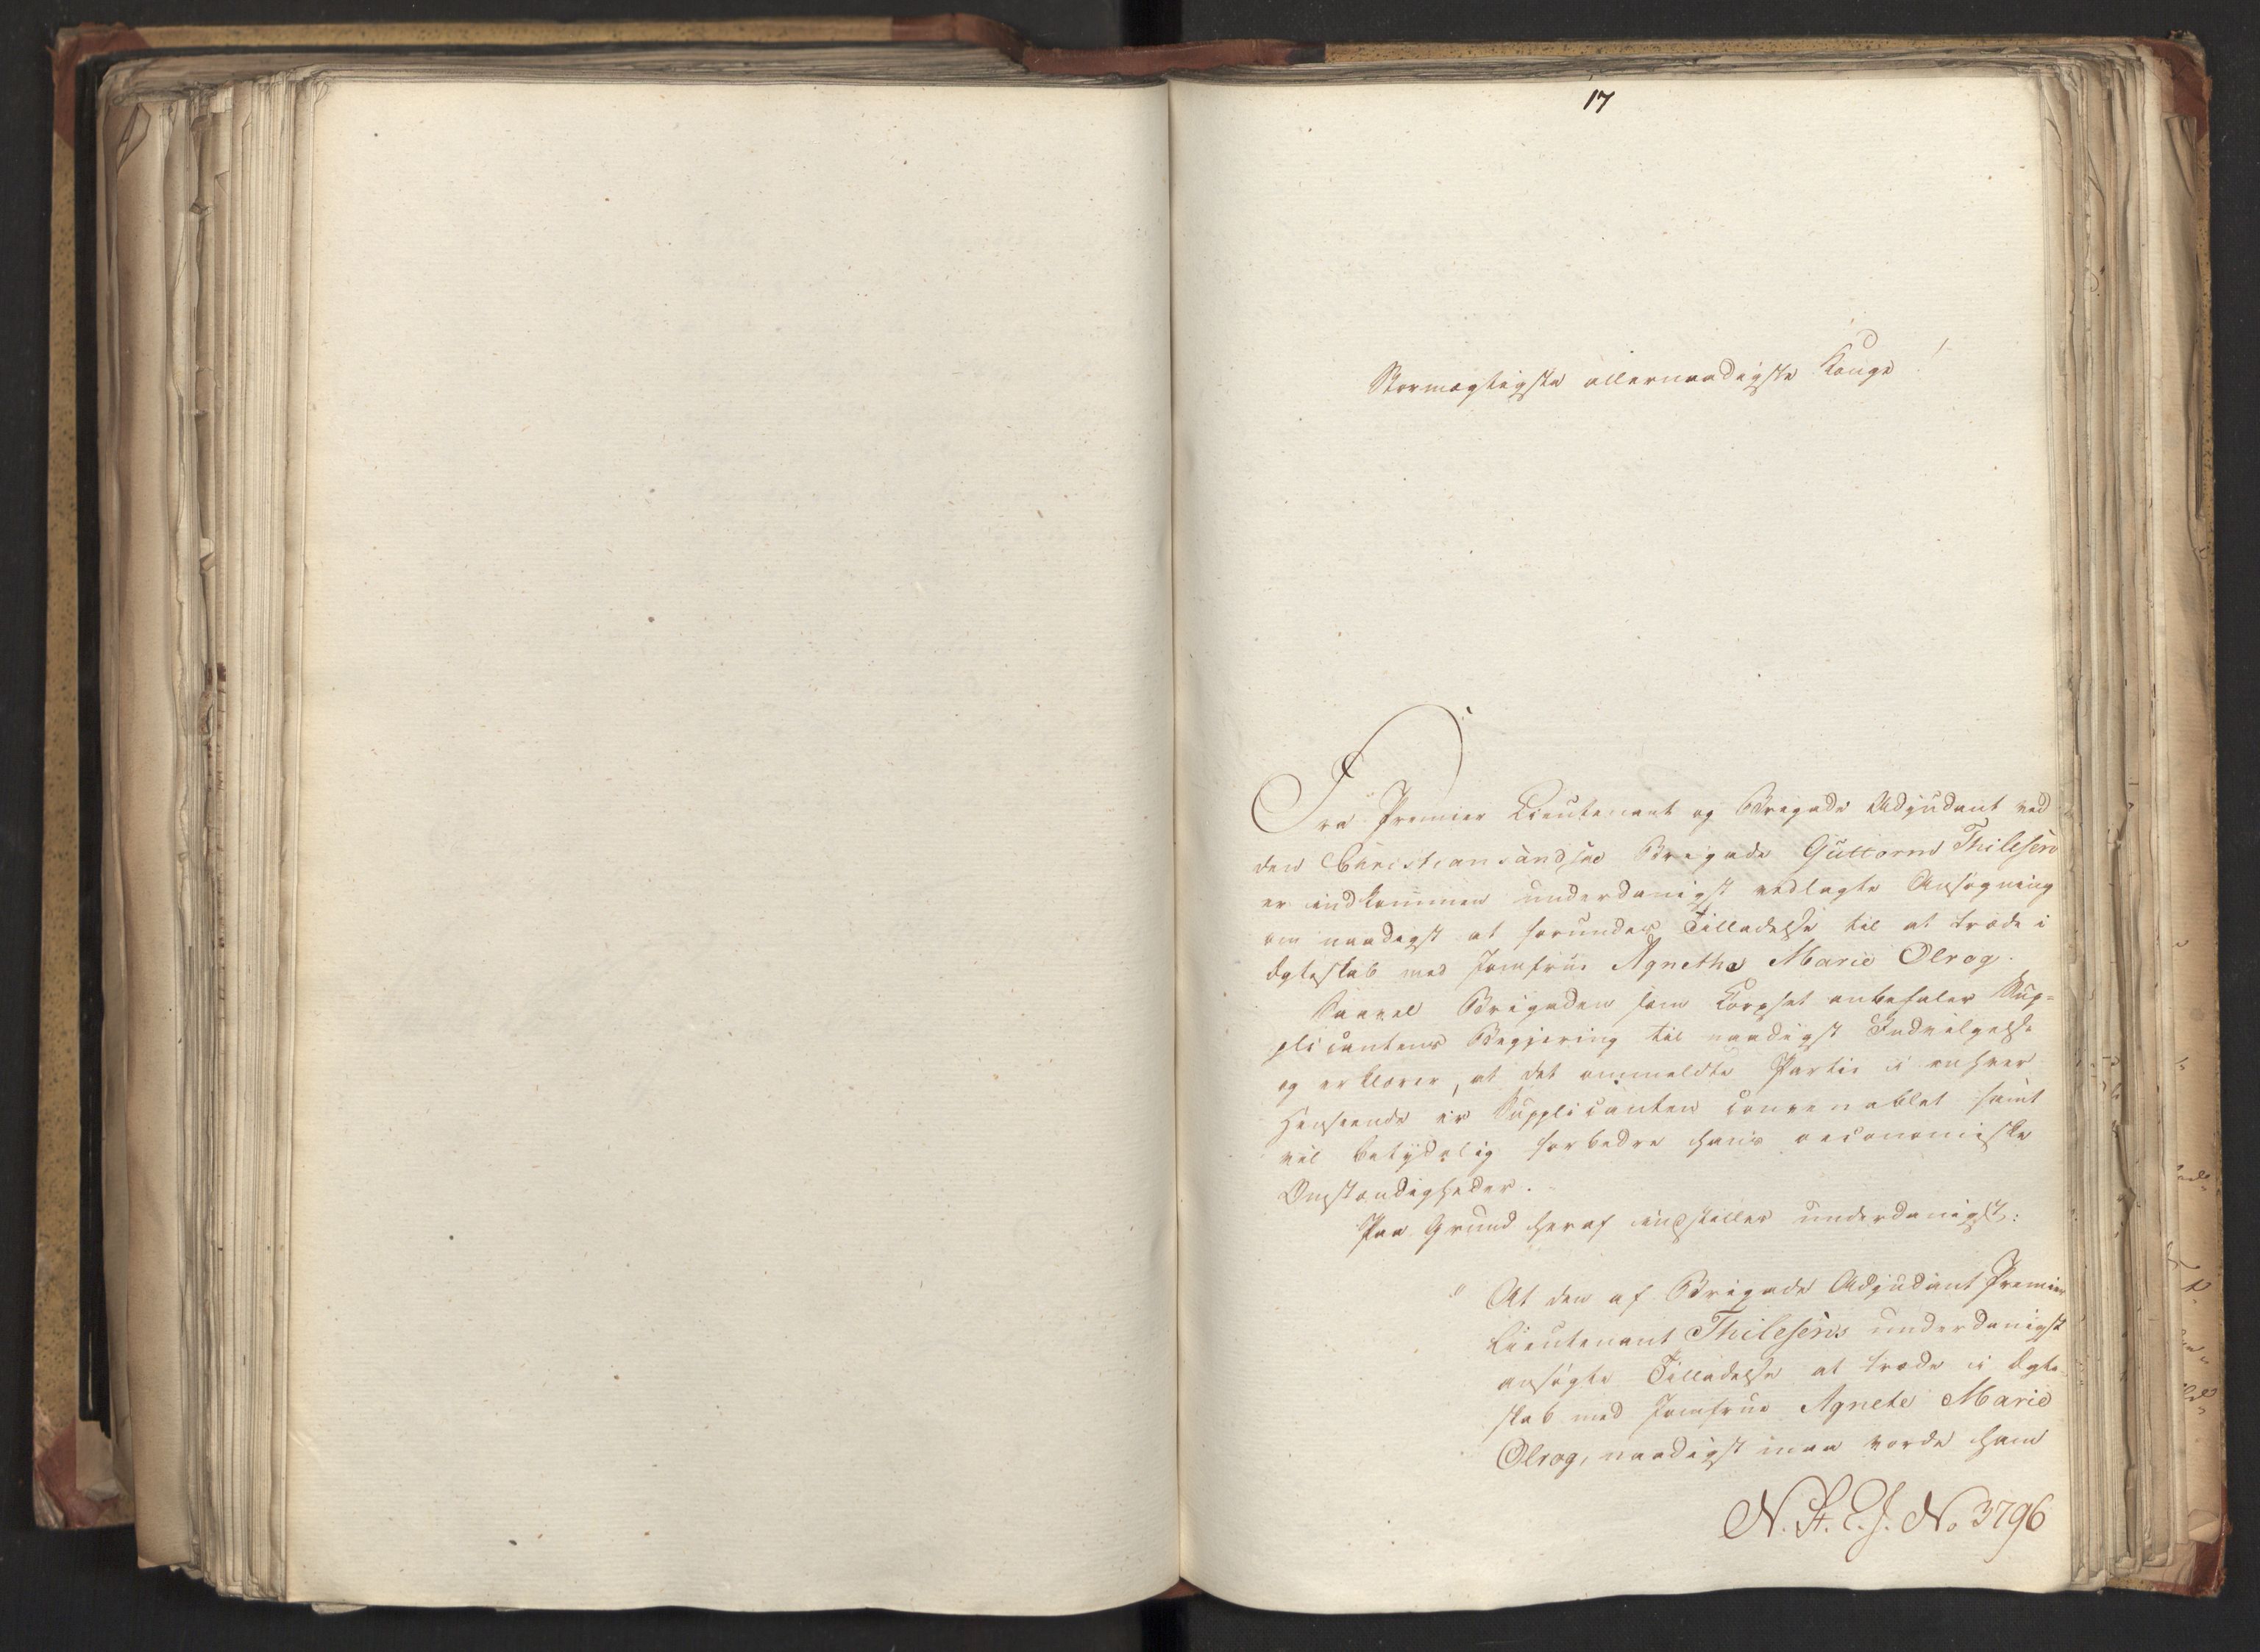 17
Stormægtigste allernaadigste Konge!
Fra Premier Lieutenant og Brigade Adjudant ved
den Christiansandske Brigade Guttorm Thilesen
er indkommen underdanigst vedlagte Ansøgning
om naadigst at forundes Tilladelse til at træde i
Ægteskab med Jomfrue Agnetha Marie Olrog.
Saavel Brigaden som Corpset anbefaler Sup=
plicantens Begjering til naadigst Indvilgelse
og erklærer, at det anmeldte Partie i enhver
Henseende er Supplicanten convenablet samt
vil betydelig forbedre hans oeconomiske
Omstændigheder.
Paa Grund heraf indstilles underdanigst:
" At den af Brigade Adjudant Premier
Lieutenant Thilesens underdanigst
ansøgte Tilladelse at træde i Ægte
skab med Jomfrue Agnete Marie
Olrog, naadigst maa vorde ham
N. St. E. J. No 3796